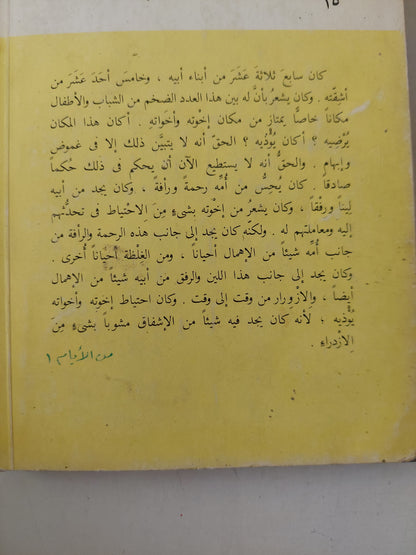 ١٥
كان سابعَ ثلاثةَ عَشَرَ من أبناء أبيه ، وخامسَ أحَدَ عَشَرَ من
أشِقَّته . وكان يشعرُ بأنَّ له بين هذا العدد الضخم من الشباب والأطفال
مكاناً خاصًّا يمتاز من مكان إخْوته وأخَواتهِ . أكان هذا المكان
يُرْضِيه ؟ أكان يُؤْذيه ؟ الحقّ أنه لا يتبيَّن ذلك إلا فى غموض
وإبهام . والحقُّ أنه لا يستطيع الآن أن يحكم فى ذلك حُكماً
صادقاً . كان يُحِسُّ من أُمِّه رحمةً ورأفةً ، وكان يجد من أبيه
لِيناً ورِفْقاً ، وكان يشعرُ من إخْوته بشىءٍ مِنَ الِاحْتياط فى تحدثُّهم
إليه ومعاملتهم له . ولكنَّه كان يجد إلى جانب هذه الرحمة والرأفة من
جانب أُمِّه شيئاً من الإهمال أحياناً ، ومن الغِلظة أحياناً أُخرى .
وكان يجد إلى جانب هذا اللين والرفق من أبيه شيئاً من الإهمال
أيضاً ، والازْورار من وقت إلى وقت . وكان احتياط إخوتِه وأخواته
يُؤْذيه ؛ لأنه كان يجد فيه شيئاً من الإشفاق مشوباً بشىءٍ مِنَ
الِازْدراءِ .
من الأيام ١